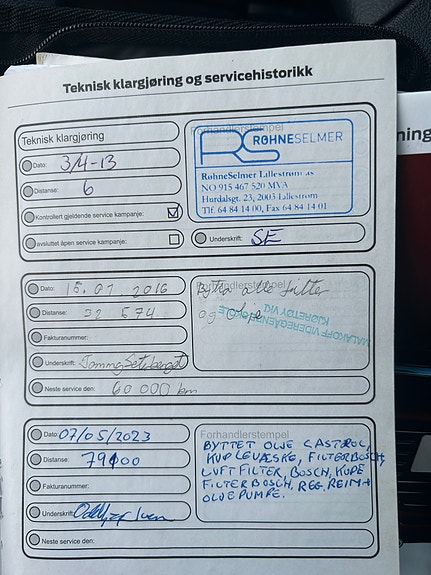 Teknisk klargjøring og servicehistorikk
Teknisk klargjøring
Dato: 3/4-13
Distanse: 6
Kontrollert gjeldende service kampanje:
avsluttet åpen service kampanje:
Forhandlerstempel
RS RØHNESELMER
RøhneSelmer Lillestrøm as
NO 915 467 520 MVA
Hurdalsgt. 23, 2003 Lillestrøm
Tlf. 64 84 14 00, Fax 64 84 14 01
Underskrift: SE
Dato: 15.01.2016
Distanse: 52 574
Fakturanummer:
Underskrift:
Neste service den: 60 000 km
Forhandlerstempel
Bytta alle filter
og olje
MALAKOFF VIDEREGÅENDE
KJØRETØY VK1
Dato: 07/05/2023
Distanse: 79100
Fakturanummer:
Underskrift:
Neste service den:
Forhandlerstempel
BYTTET OLJE CASTROL,
KUPLEVÆSKE, FILTER BOSCH,
LUFTFILTER, BOSCH, KUPE
FILTER BOSCH, REG. REIM +
OLJEPUMPE.
ning